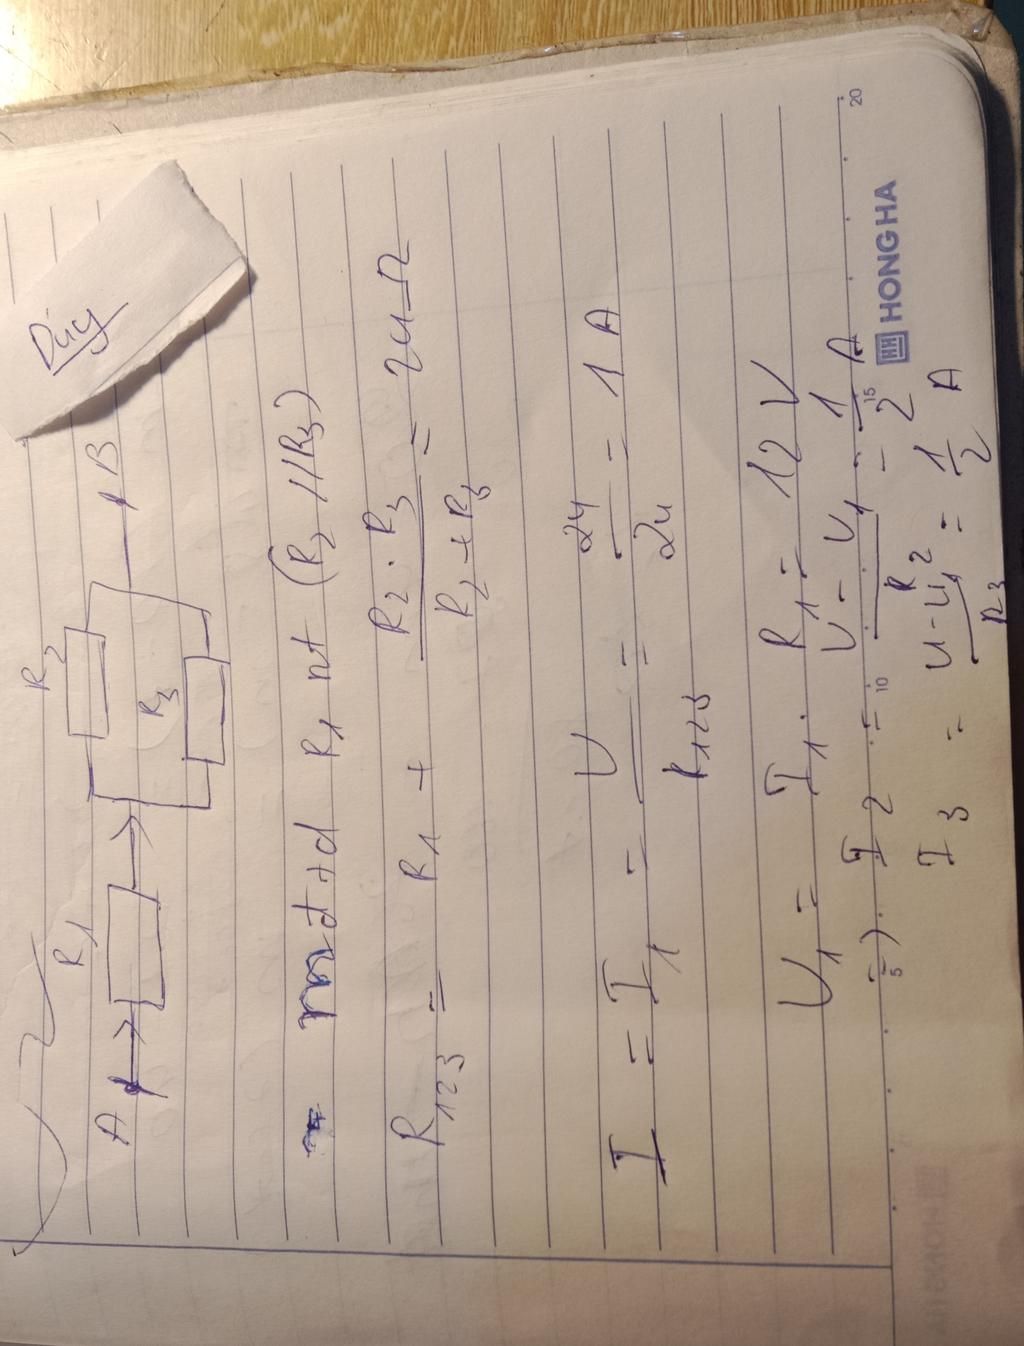 Dúy
R1 R2
A B
R3
mạch + d R1 nt (R2 // R3)
R123 = R1 + R2 . R3 / R2 + R3 = 24 Ω
I = I1 = U / R123 = 24 / 24 = 1 A
U1 = I1 . R1 = 12 V
=) I2 = U - U1 / R2 = 1 / 2 A
I3 = U - U1 / R3 = 1 / 2 A
5 10 15 20
HONG HA